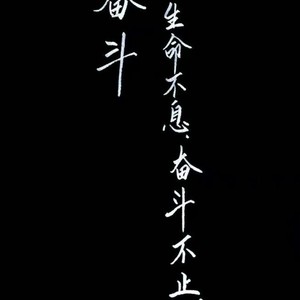 奋斗
生命不息，奋斗不止。